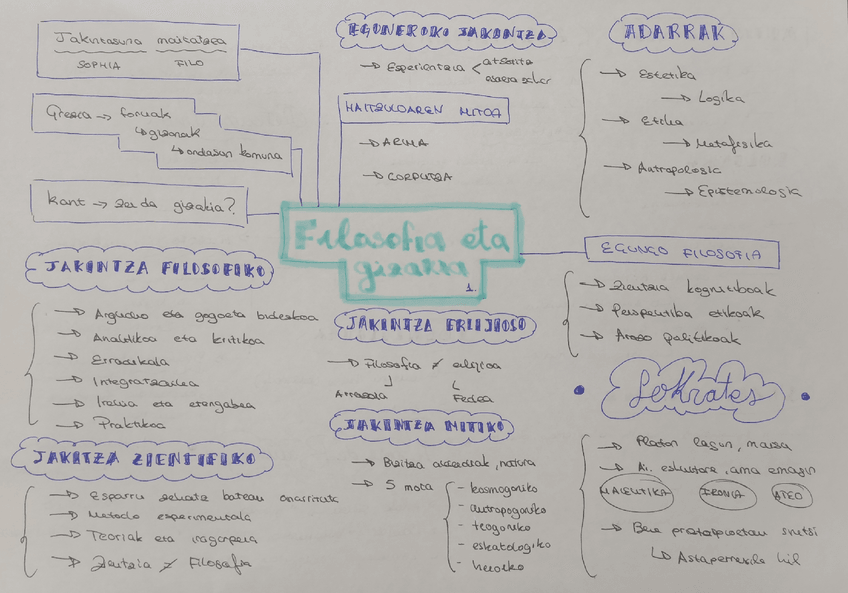 Jakintasuna maitatzea
SOPHIA FILO
Grezia → foruak
↳ gizonak
↳ ondasun komuna
Kant → zer da gizakia?
Filosofia eta
gizakia
1.
EGUNEROKO JAKINTZA
→ Esperientzia <
HAITZULOAREN MITOA
→ ARIMA
→ GORPUTZA
ADARRAK
→ Estetika
→ Logika
→ Etika
→ Metafisika
→ Antropologia
→ Epistemologia
EGUNGO FILOSOFIA
→ Zientzia kognitiboak
→ Perspektiba etikoak
→ Arazo politikoak
JAKINTZA FILOSOFIKO
→ Argudio eta gogoeta bidezkoa
→ Analitikoa eta kritikoa
→ Erradikala
→ Integratzailea
→ Irekia eta etengabea
→ Praktikoa
JAKITZA ZIENTIFIKO
→ Esparru zehatz batean oinarrituta
→ Metodo esperimentala
→ Teoriak eta iragarpena
→ Zientzia ≠ Filosofia
JAKINTZA ERLIJIOSO
→ Filosofia ≠ erlijioa
Arrazoia Fedea
JAKINTZA MITIKO
→ Bizitza ,natura
→ 5 mota
- kosmogoniko
- antropogoniko
- teogoniko
- eskatologiko
- heroiko
Sokrates
→ Platon lagun, maisu
→ Ai. eskultore, ama emagin
MAIEUTIKA IRONIA ATEO
→ Bere printzipioetan sinetsi
↳ hil